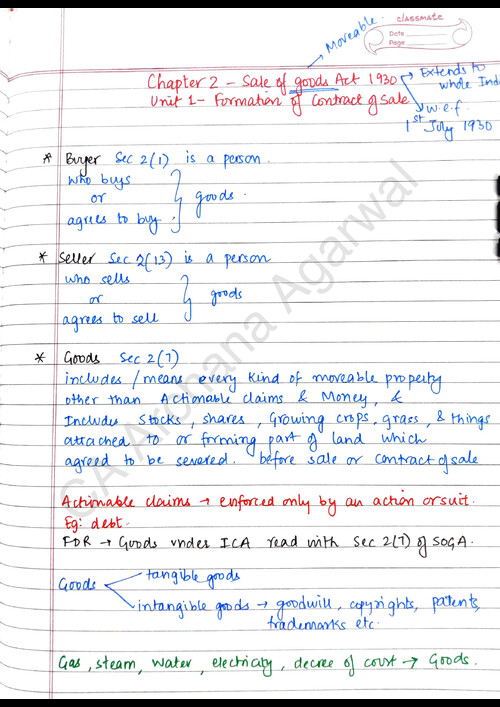 classmate
Date
Page
Moveable.
Chapter 2 - Sale of goods Act 1930
Extends to
whole Ind
Unit 1 - Formation of Contract of Sale
w.e.f
1st July 1930
* Buyer Sec 2(1) is a person.
who buys
or
agrees to buy.
goods.
* Seller Sec 2(13) is a person
who sells
or
agrees to sell
goods
* Goods Sec 2(7)
includes / means every kind of moveable property
other than Actionable claims & Money, &
Includes stocks, shares, Growing crops, grass, & things
attached to or forming part of land which
agreed to be severed. before sale or contract of sale
Actionable claims → enforced only by an action or suit.
Eg: debt.
FDR → Goods under ICA read with Sec 2(7) of SOGA.
Goods
tangible goods
intangible goods → goodwill, copyrights, patents,
trademarks etc.
Gas, steam, water, electricity, decree of court → Goods.
CA Archana Agarwal